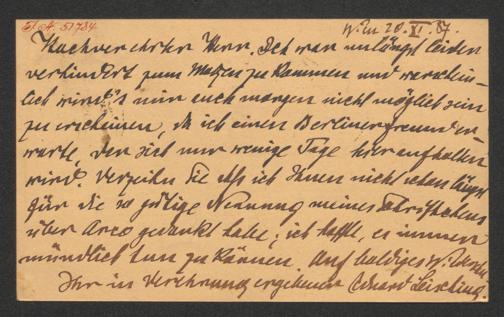 E/A. 51784
Wien 20. XI. 87.
Hochverehrter Herr. Ich war unlängst leider
verhindert zum zu kommen und wahrschein-
lich wird's mir auch morgen nicht möglich sein
zu erscheinen, da ich einen Berlinerfreund er-
warte, der sich nur wenige Tage hier aufhalten
wird. Verzeihn Sie daß ich Ihnen nicht schon längst
für die so gütige Nennung meines Schriftchens
über gedankt habe; ich hoffe, es immer
mündlich tun zu können. Auf baldiges
Ihr in Verehrung ergebener Eduard Leisching.